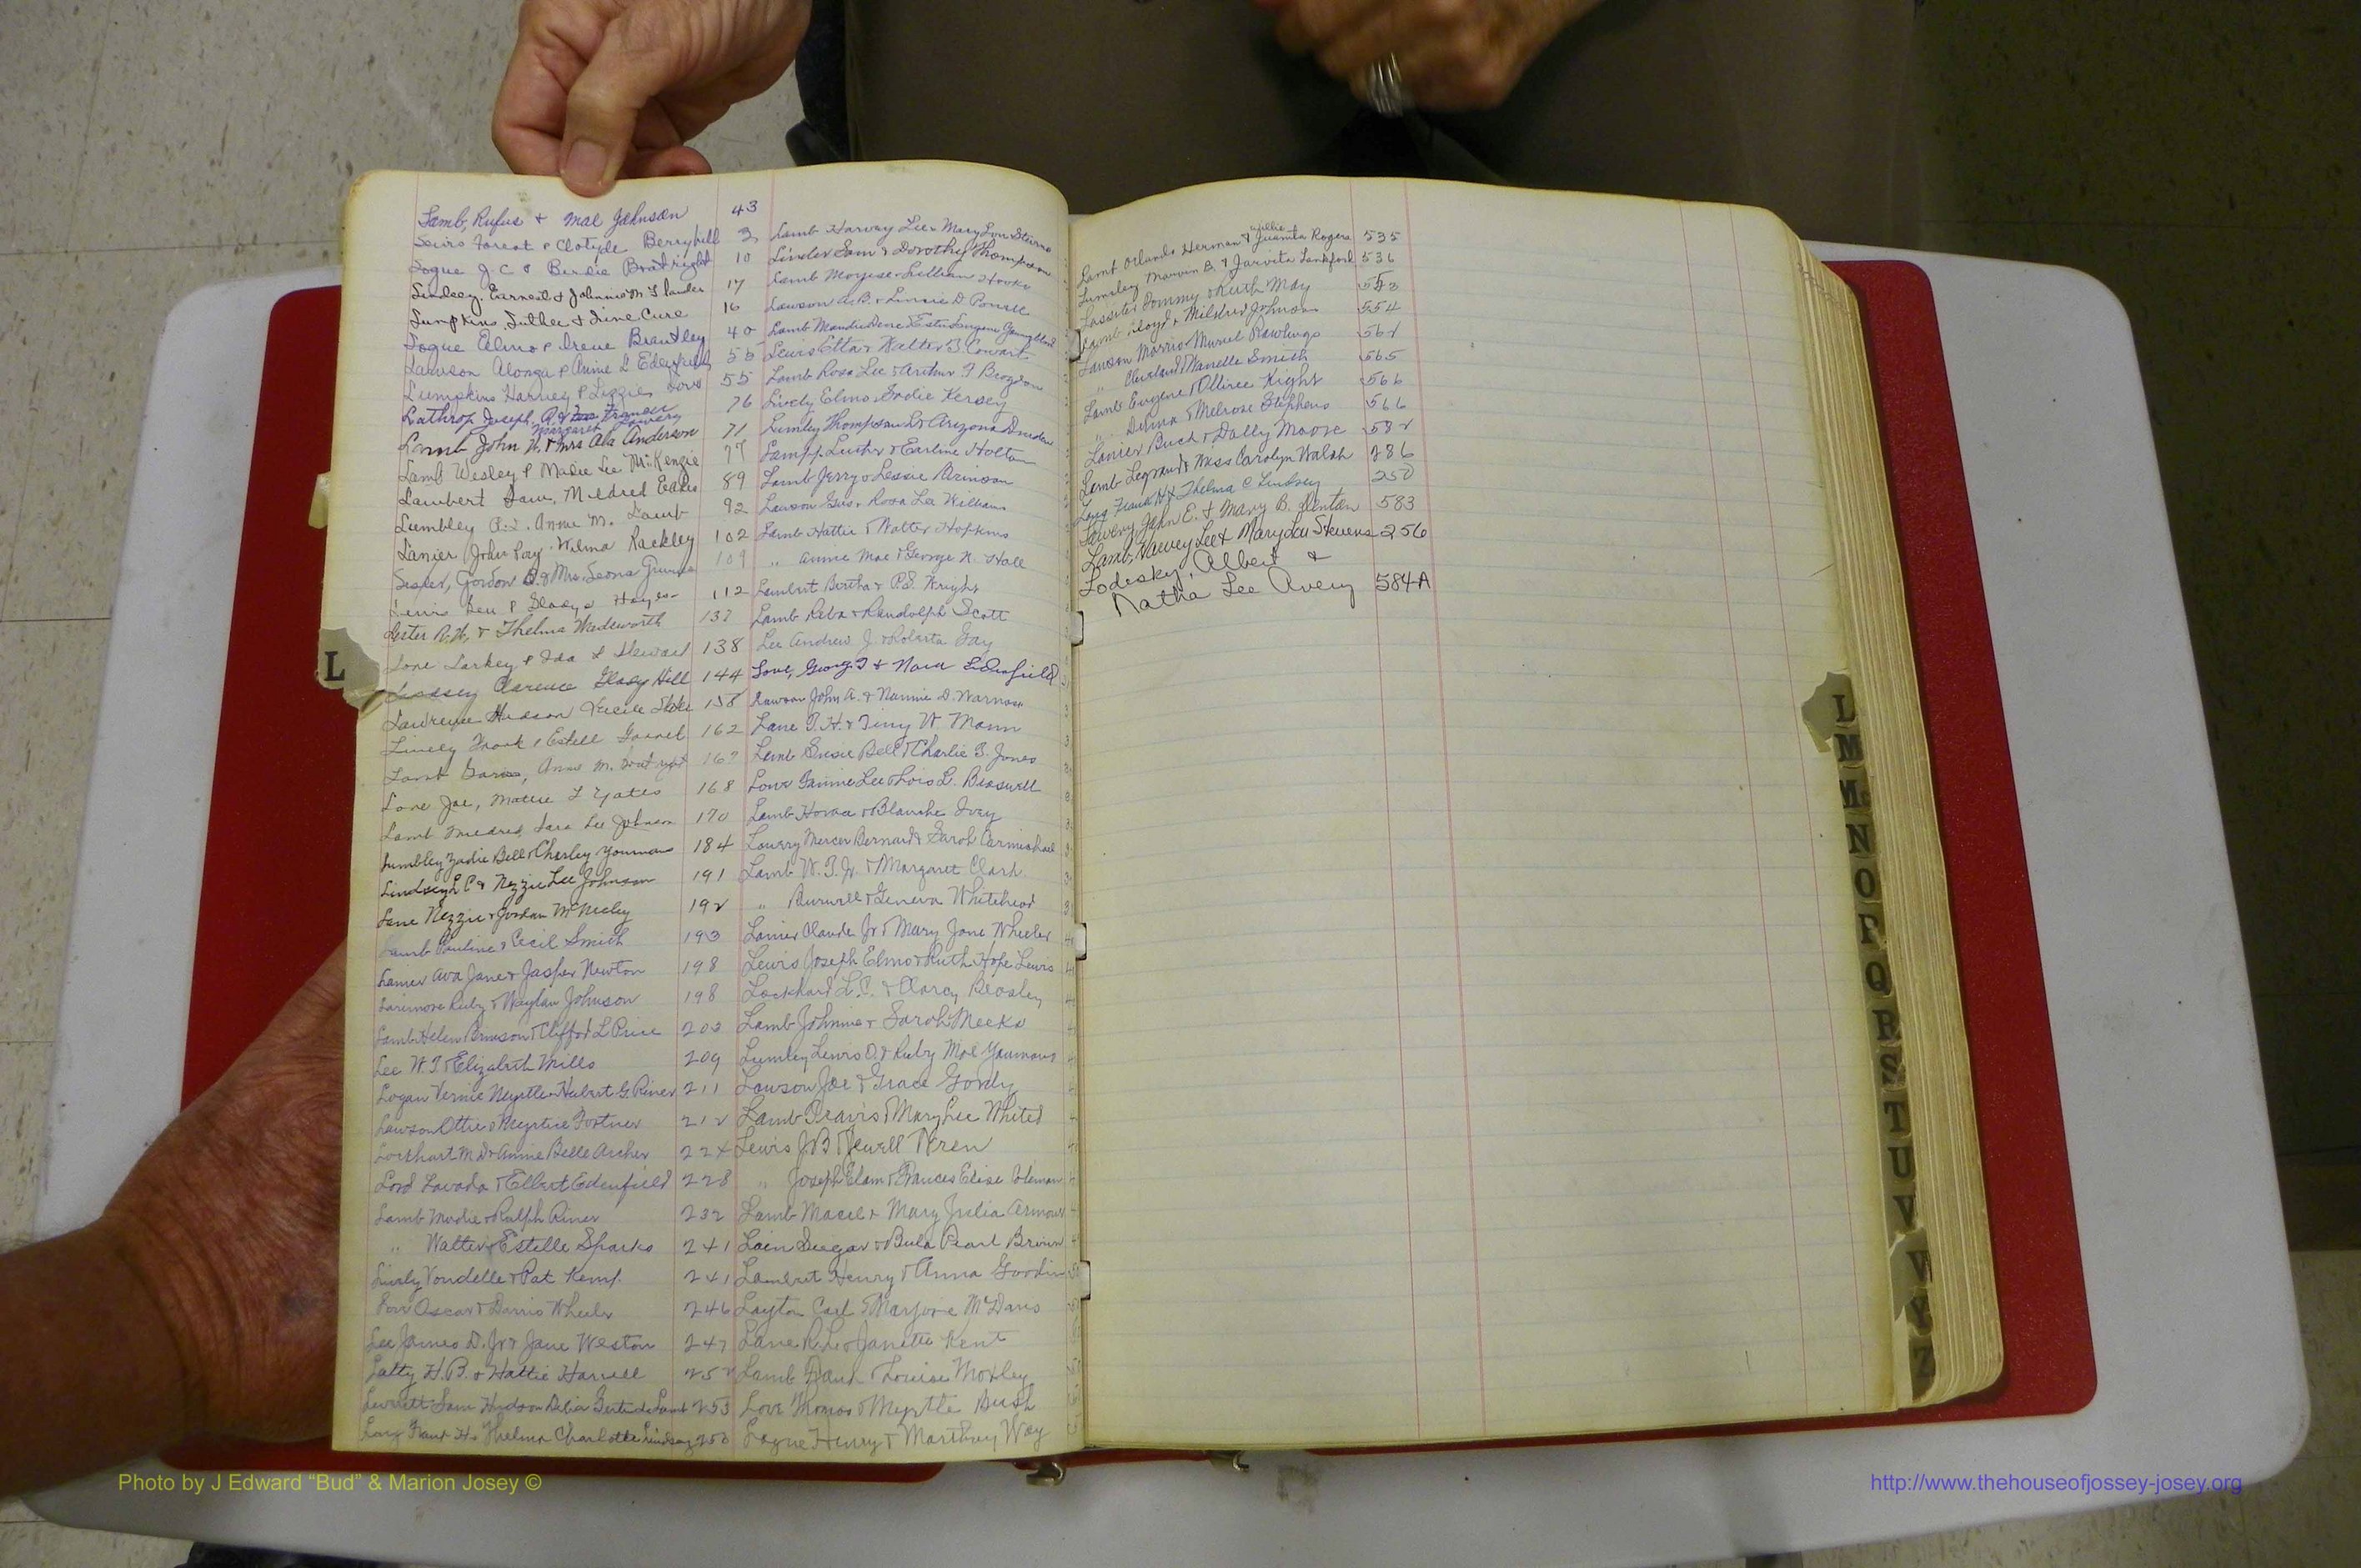 Lamb, Rufus & Mae Johnson 43
Forest & Clotyle Berryhill 3
Logue J. C. & Birdie Boatright 10
Lindsey, Earnest & Johnnie M. Flanders 17
Lumpkins, Luther & June Cure 16
Logue Elmo & Irene Brantley 40
Lawson Alonza & Annie L Edenfield 55
Lumpkins Harvey & Lizzie 55
Lathrop Joseph A. & Frances 76
Margaret Lowery
Lamb John W. & Mrs Ala Anderson 71
Lamb Wesley & Madie Lee McKenzie 77
Lambert Sam, Mildred 89
Lumbley Annie M. Lamb 92
Lanier John Roy Wilma Rackley 102
Lester, Gordon & Mrs. Leona 109
Lewis Ben & Gladys Hayes 112
Lester A. W. & Thelma Wedeworth 137
Love Larkey & Ida L Steward 138
Lindsey Clarence Glady Hill 144
Lawrence Hudson Lucile 158
Lively Frank & Estell 162
Lamb Annie M. Boatright 167
Love Joe, Mattie L Yates 168
Lamb Sara Lee Johnson 170
Lumbley Zadie Bell & Charley Youmans 184
Lindsey L C & Nezzie Lee Johnson 191
Lane Nezzie & Jordan McNeeley 192
Lamb Pauline & Cecil Smith 193
Lanier Ava Jane & Jasper Newton 198
Larimore Ruby & Waylan Johnson 198
Lamb Helen Brinson & Clifford L Price 202
Lee W. T. & Elizabeth Mills 209
Logan Vernie Myrtle & Hubert G. Riner 211
Lawson Ottie & Myrtice Fortner 212
Lockhart M D & Annie Belle Archer 224
Lord Lavada & Elbert Edenfield 228
Lamb Modie & Ralph Riner 232
" Walter & Estelle Sparks 241
Lively Vondelle & Pat Kemp 241
Oscar & Dorris Wheeler 246
Lee James D. Jr & Jane Weston 247
Latty H. B. & Hattie Harrell 252
Leverett Sam Hudson Delia Gertrude Lamb 253
Long Frank H. & Thelma Charlotte Lindsey 250
Lamb Harvey Lee & Mary Lou Stevens
Linder Sam & Dorothy Thompson
Lamb Moyise Lillian Hooks
Lawson A. B. & Linnie D. Powell
Lamb Maudie Dene & Ester Eugene Youngblood
Lewis Etta & Walter B. Cowart
Lamb Rosa Lee & Arthur F Brogdon
Lively Elmo Sadie Kersey
Lumley Thompson L & Arizona Durden
Lampp Luther & Earline Holton
Lamb Jerry & Lessie Brinson
Lawson Gus & Rosa Lee Williams
Lamb Hattie & Walter Hopkins
" Annie Mae & George N. Hall
Lambert Bertha & P. S. Wright
Lamb Reba & Randolph Scott
Lee Andrew J. & Roberta Gay
Love, George T & Nora Edenfield
Lawson John A. & Nannie D. Warnock
Lane T. H. & Tiny W Mann
Lamb Susie Bell & Charlie B. Jones
Love Jannie Lee & Lois L. Braswell
Lamb Horace & Blanche Ivey
Lowery Mercer Bernard & Sarah Carmichael
Lamb W. T. Jr. & Margaret Clark
" Burwell & Geneva Whitehead
Lanier Claude Jr & Mary Jane Wheeler
Lewis Joseph Elmo & Ruth Hope Lewis
Lockhard L. C. & Clarcy Beasley
Lamb Johnnie & Sarah Meeks
Lumley Lewis O. & Ruby Mae Youmans
Lawson Joe & Grace Gordy
Lamb Travis & Mary Lee Whited
Lewis J. B & Jewell Wren
" Joseph Elam & Frances Elise Coleman
Lamb Macel & Mary Julia Armour
Lain Seegar & Bula Pearl Brown
Lambert Henry & Anna Goodin
Layton Carl & Marjorie McDavis
Lane R. L. & Janette Kent
Lamb Daub & Louise Moxley
Love Thomas & Myrtle Bush
Logue Henry & Marthay Way
Willie
Lamb Orlando Herman & Juanita Rogers 535
Lumsley Marvin B. & Jarvita Lankford 536
Lassiter Tommy & Ruth May 543
Lamb Floyd & Mildred Johnson 554
Lawson Morris & Muriel Rawlings 562
" Cleveland & Nanelle Smith 565
Lamb Eugene & Olliree Kight 566
" Delma & Melrose Stephens 566
Lanier Buck & Dolly Moore 582
Lamb Legrand & Miss Carolyn Walsh 286
Long Frank H & Thelma C Lindsey 250
Lowery John E. & Mary B. Denton 583
Lamb, Harvey Lee & Mary Lou Stevens 256
Lodisky, Albert &
Natha Lee Avery 584A
L
L
M
Mc
N
O
P
Q
R
S
T
U
V
W
Y
Z
Photo by J Edward “Bud” & Marion Josey ©
http://www.thehouseofjossey-josey.org